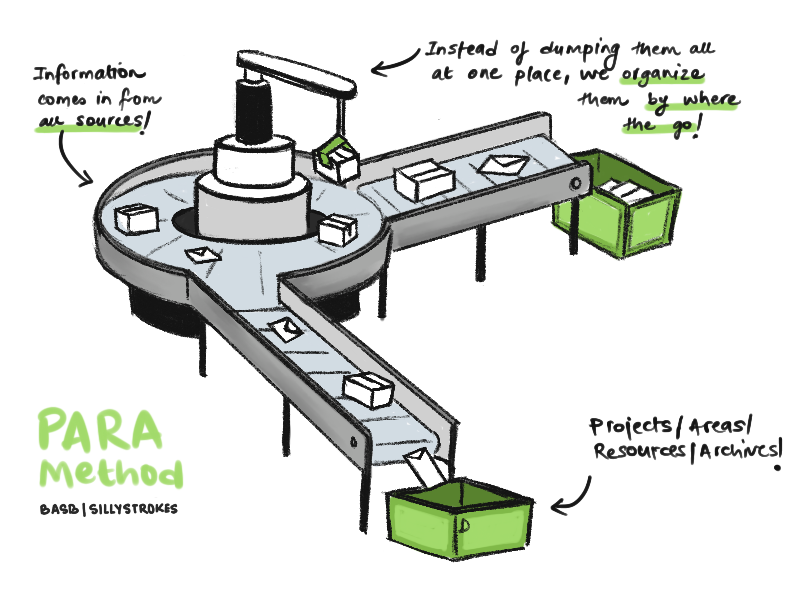 Information
comes in from
all sources!
Instead of dumping them all
at one place, we organize
them by where
the go!
PARA
Method
BASB|SILLYSTROKES
Projects/Areas/
Resources/Archives!